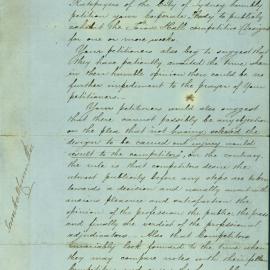 Ratepayers of the City of Sydney humbly
petition your Corporate Body to publicly
exhibit the Town Hall Competitive Designs
for one or more weeks
Your petitioners also beg to suggest that
they have patiently awaited the time when
in their humble opinion there could be no
further impediment to the prayer of Your
petitioners.
Your petitioners would also suggest
that there cannot possibly be any objection
on the plea that not having selected the
design to be carried out injury would
result to the competitors, on the contrary,
the rule is that competitors desire the
utmost publicity before any steps are taken
towards a decision and usually await with
pleasure and satisfaction the
opinion of the profession the public the press
and finally the verdict of the professional
adjudicators. Also that Competitors
invariably look forward to the time when
they may compare notes with their fellow